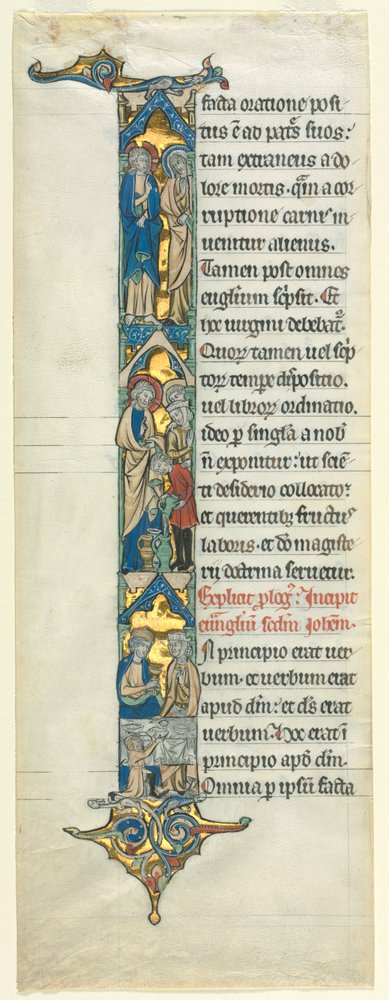 facta oratione posi
tus ē ad patēs suos:
tam extraneus a do
lore mortis. qm̄ a cor
ruptione carnis in
uenitur alienus.
Tamen post omnes
euglium sc̄psit. Et
uirgini debebat̄.
Quoꝝ tamen uel sc̄p
toꝝ tempē disposicio.
uel libroꝝ ordinatio.
ideo ꝑ singla a nob̄
n̄ exponitur: ut sciē
ti desiderio collocato:
et querentibꝫ fructꝰ
laboris. et dō magiste
rii doctrina seruetur.
Explicit ꝓlogꝰ: Incipit
euāgliū secdm̄ Johem̄.
N principio erat uer
bum. et uerbum erat
apud dm̄: et ds̄ erat
uerbum. hoc erat ī
principio apd̄ dm̄.
Omnia ꝑ ipsū facta